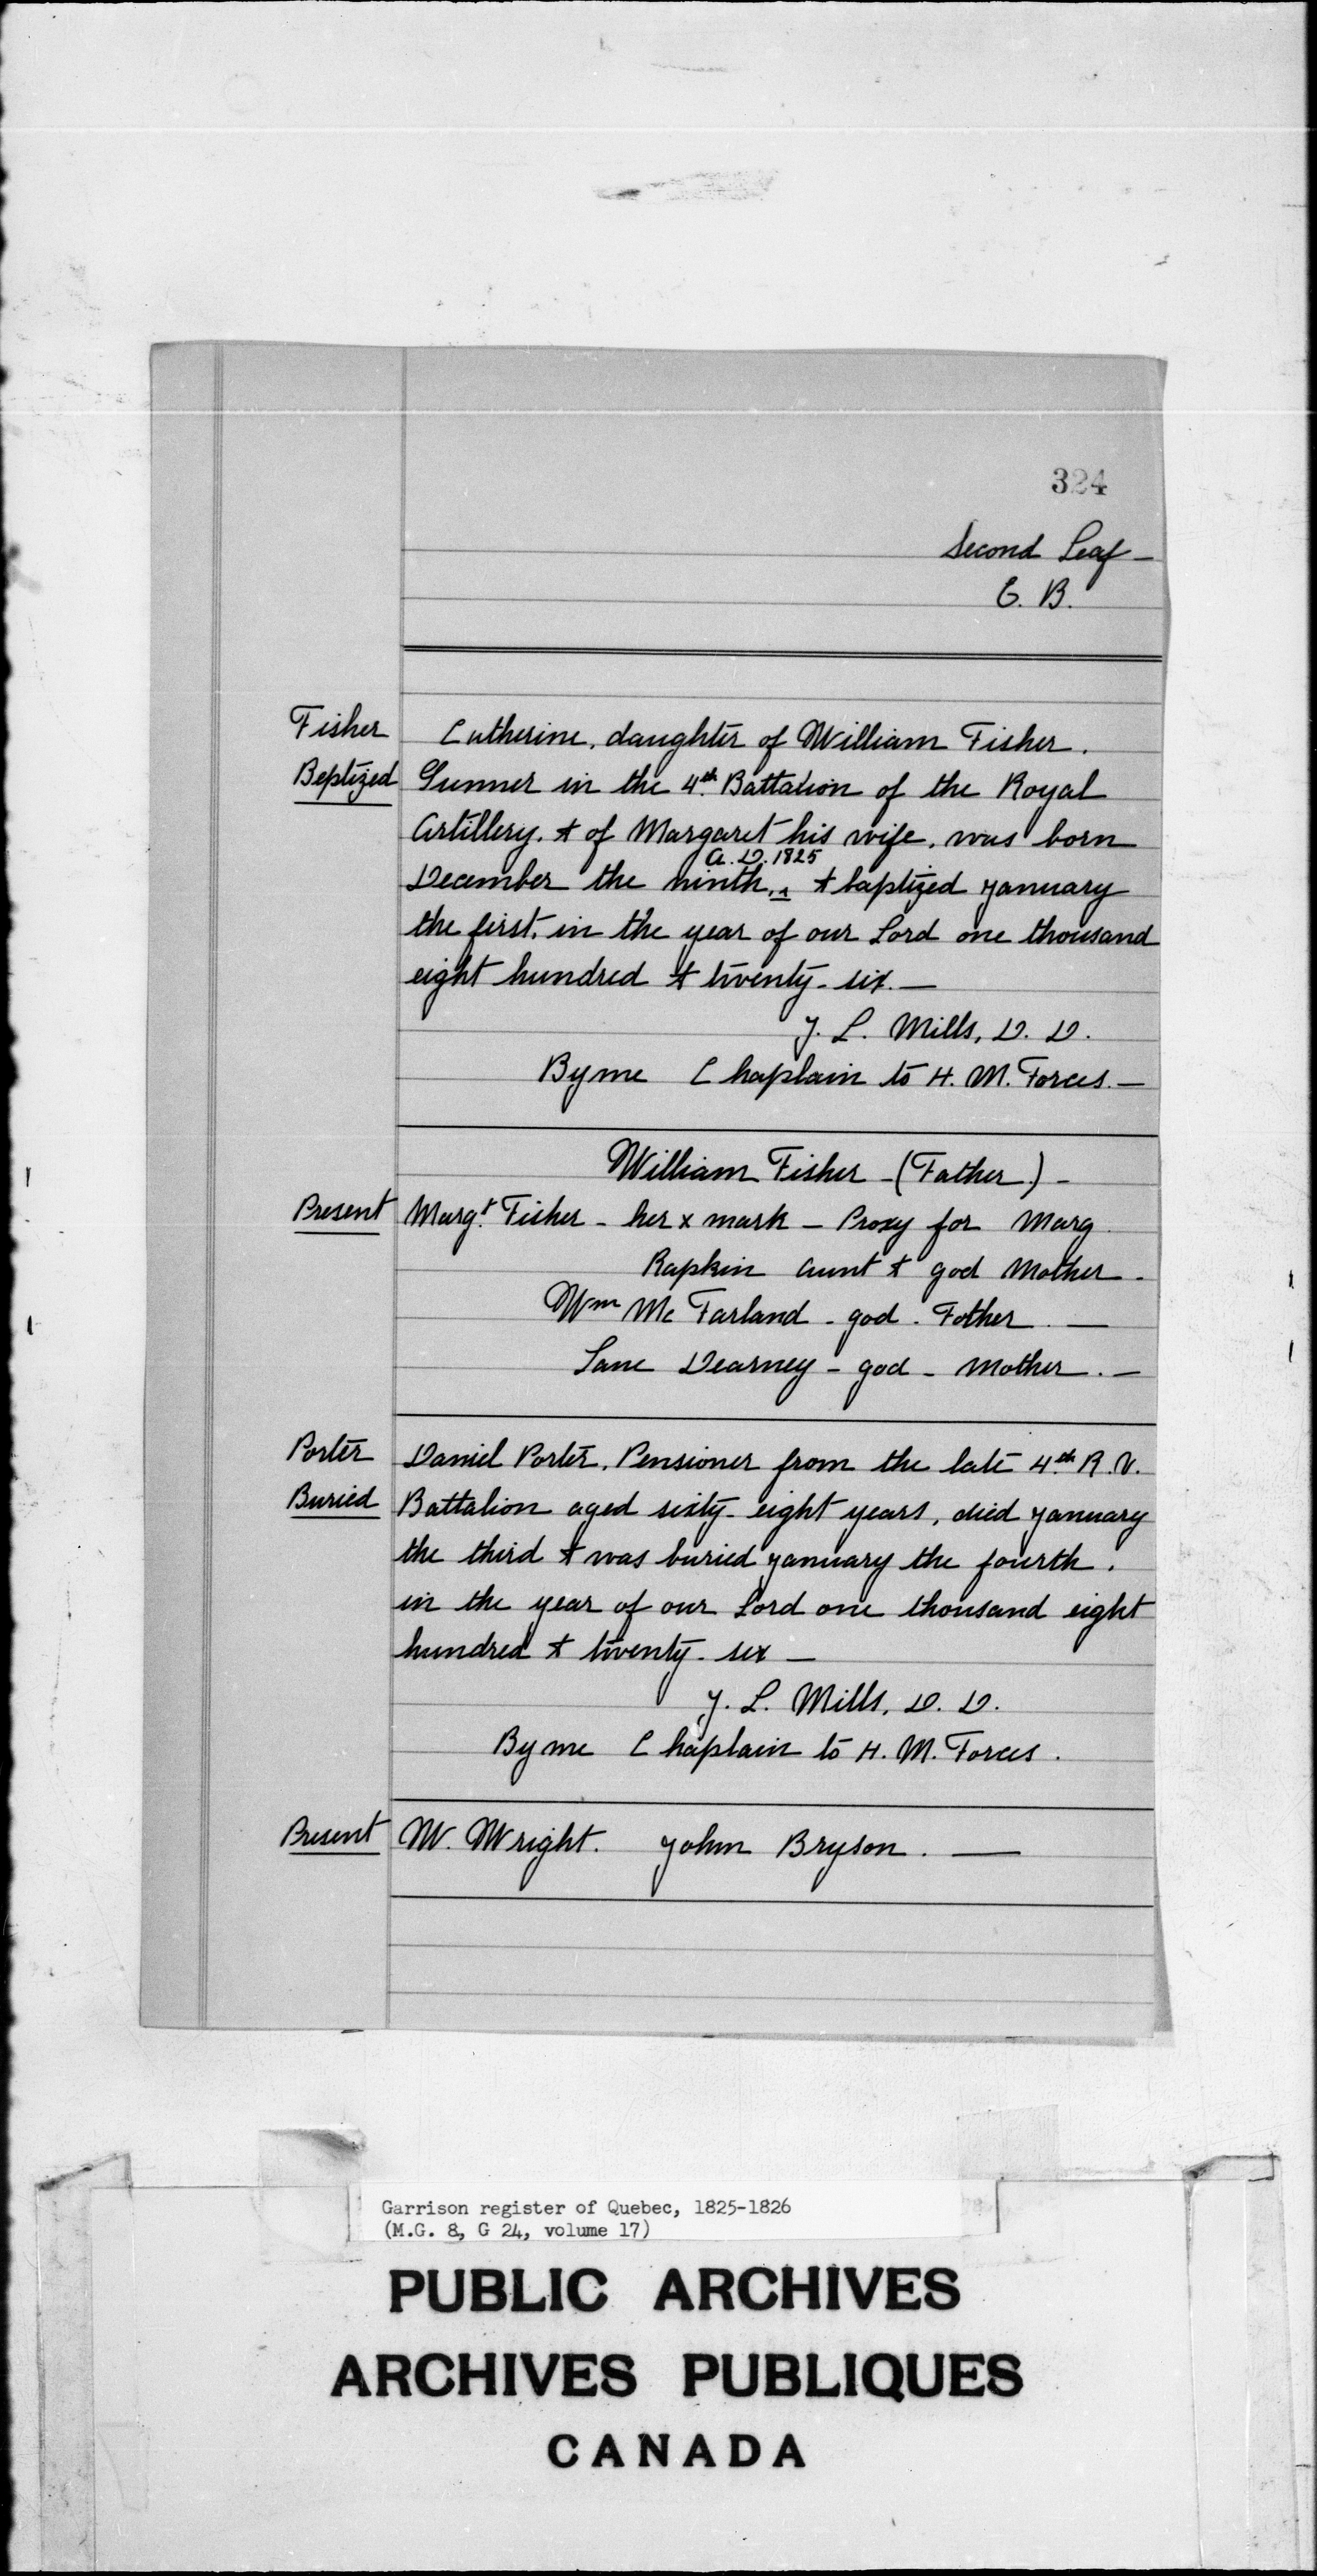 324
Second Leaf -
E. B.
Fisher Catherine, daughter of William Fisher.
Beptized Gunner in the 4th Battalion of the Royal
Artillery. & of Margaret his wife. was born
A. D. 1825
December the ninth, ^ & baptized January
the first. in the year of our Lord one thousand
eight hundred & twenty-six. —
J. L. Mills, D. D.
By me Chaplain to H. M. Forces. —
William Fisher - (Father) -
Present Margt. Fisher - her x mark - Proxy for Marg
Rapkin aunt & god Mother -
Wm Mc Farland - god - Father. —
Jane Dearney - god - Mother. —
Porter Daniel Porter. Pensioner from the late 4th R. V.
Buried Battalion aged sixty-eight years, died January
the third & was buried January the fourth.
in the year of our Lord one thousand eight
hundred & twenty-six —
J. L. Mills, D. D.
By me Chaplain to H. M. Forces.
Present W. Wright. John Bryson. —
Garrison register of Quebec, 1825-1826
(M.G. 8, G 24, volume 17)
PUBLIC ARCHIVES
ARCHIVES PUBLIQUES
CANADA